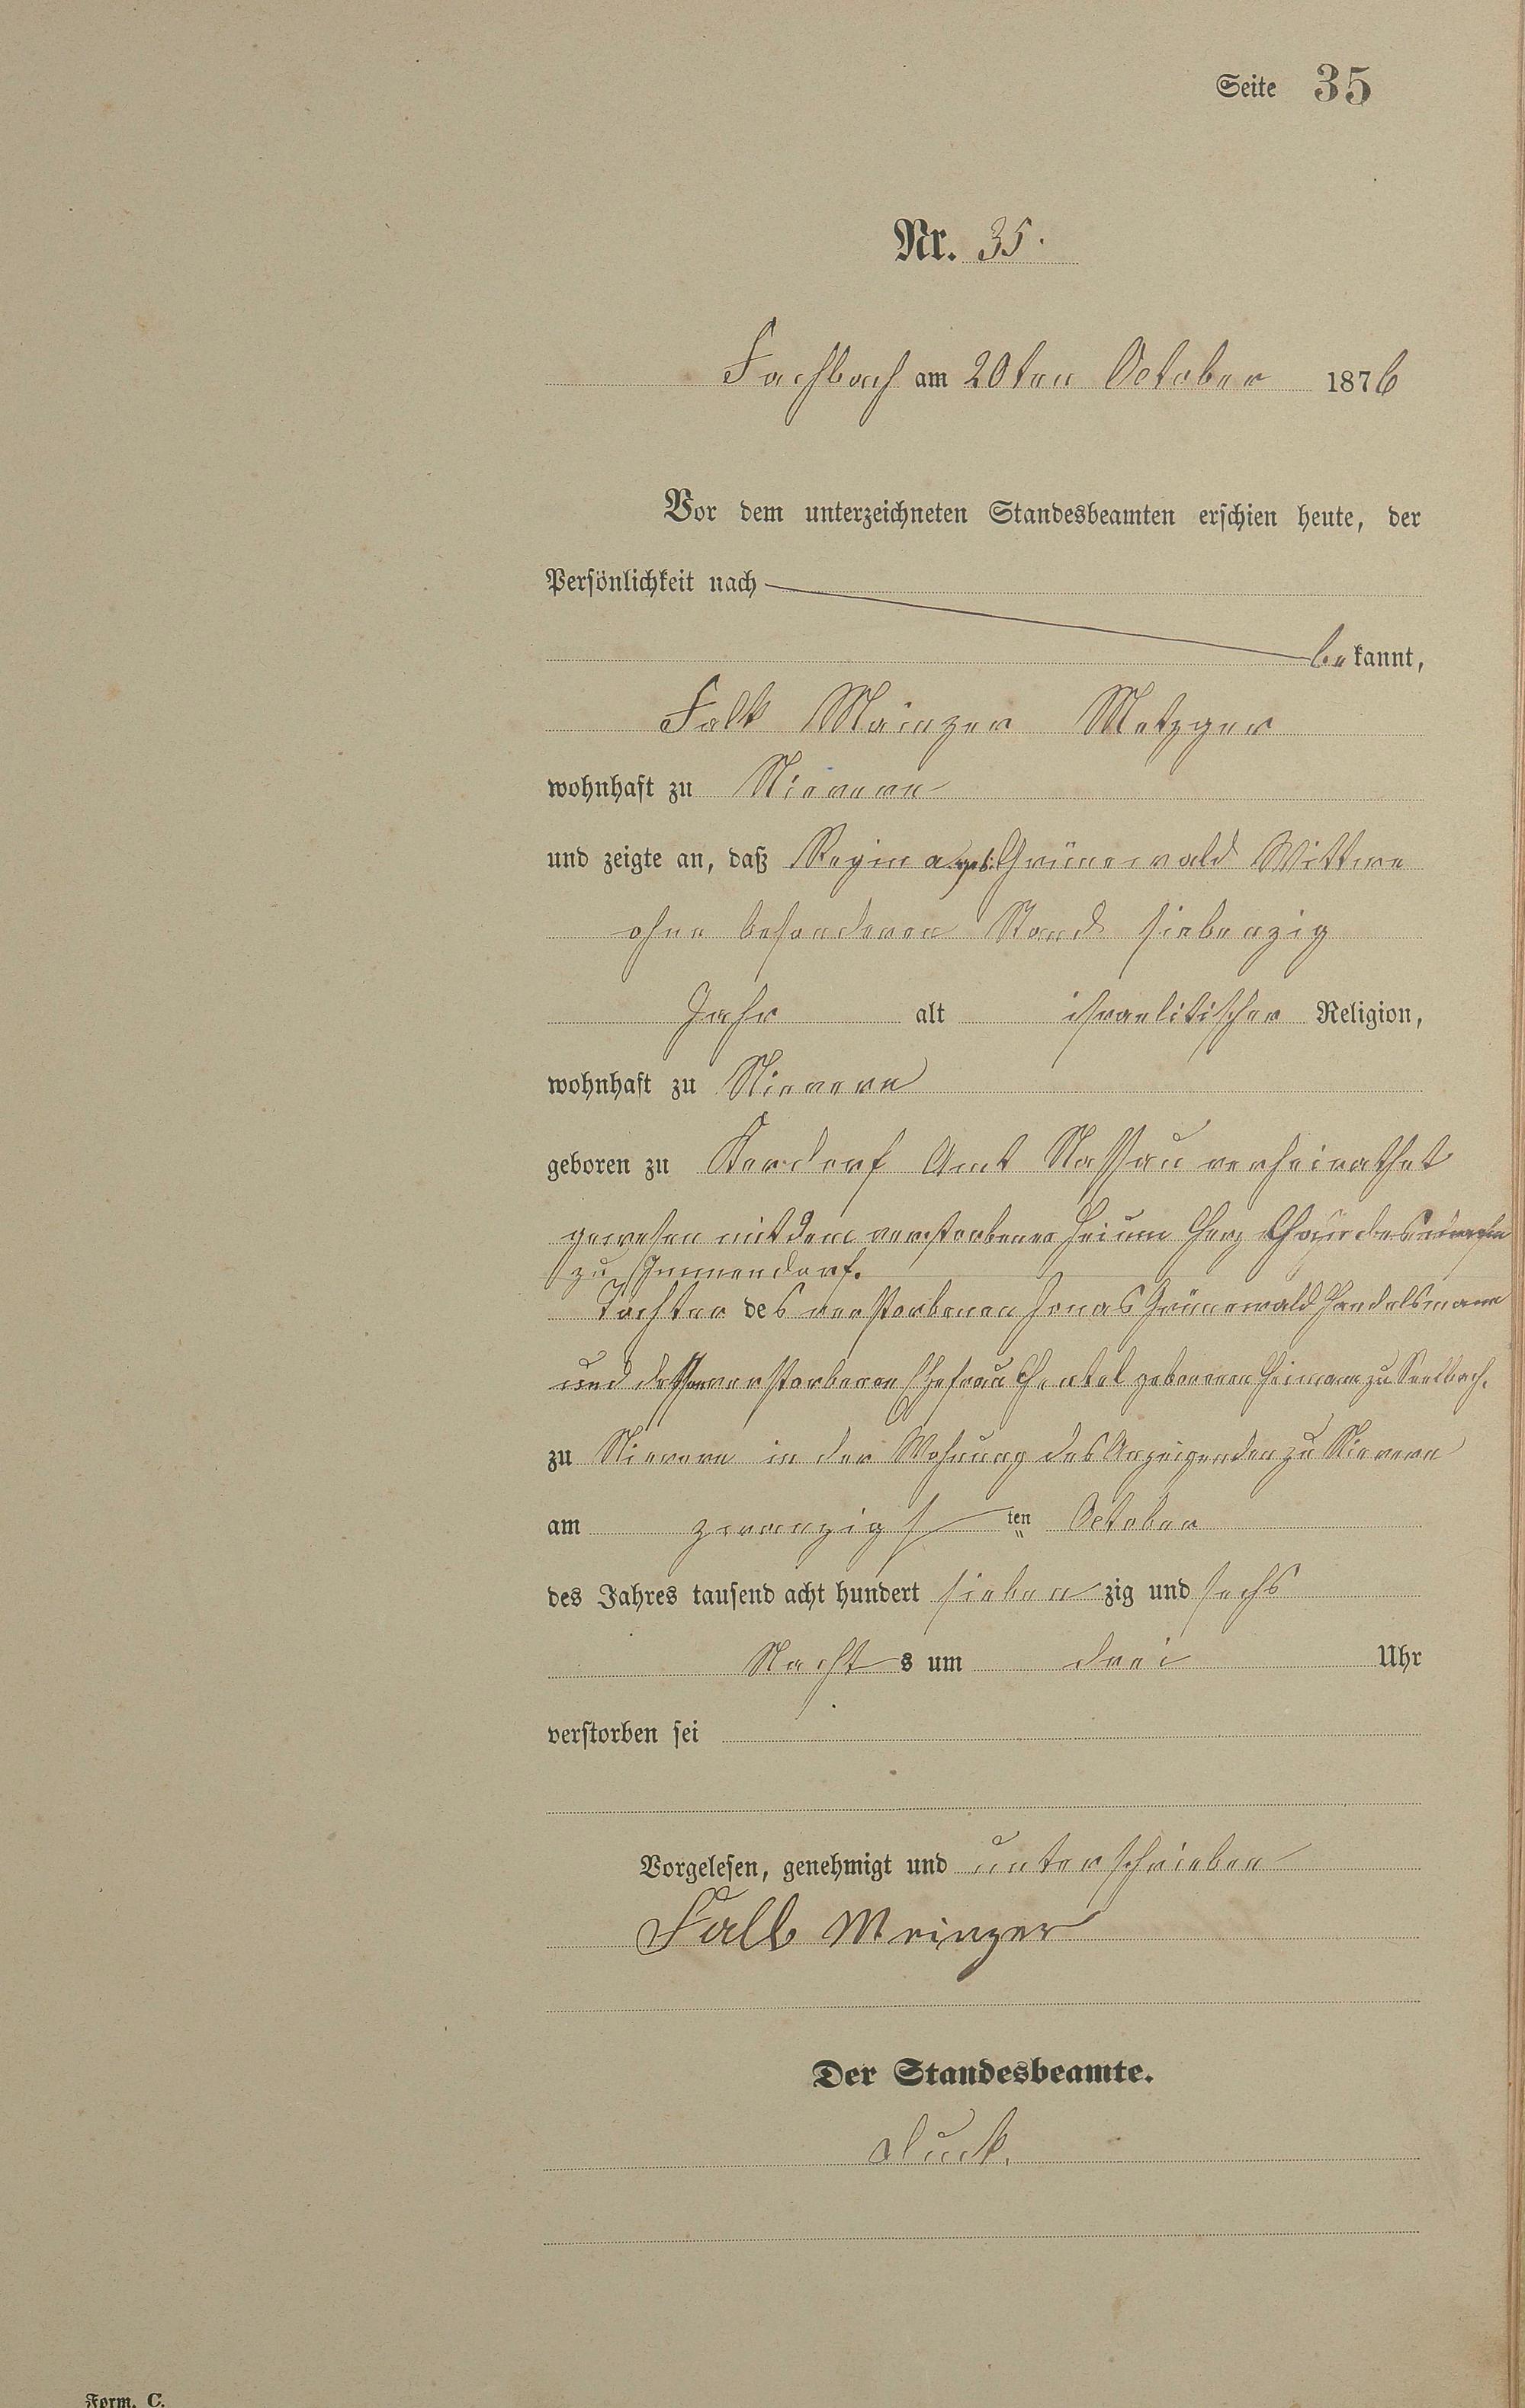 Seite 35
Nr. 35.
Fachbach am 20ten October 1876
Vor dem unterzeichneten Standesbeamten erschien heute, der
Persönlichkeit nach
bekannt,
Falk Mainzer Metzger
wohnhaft zu Nievern
und zeigte an, daß Regina geb. Grünewald Wittwe
ohne besonderen Stand siebenzig
Jahr alt israelitischer Religion,
wohnhaft zu Nievern
geboren zu Kerdorf Amt Nassau verheirathet
gewesen mit dem verstorbenen Herz
zu Immendorf.
Tochter des verstorbenen Jonas Grünewald Handelsmann
und dessen verstorbenen Ehefrau geborenen Heimann zu Seelbach.
zu Nievern in der Wohnung des Anzeigenden zu Nievern
am zwanzigsten October
des Jahres tausend acht hundert siebenzig und sechs
Nachts um drei Uhr
verstorben sei
Vorgelesen, genehmigt und unterschrieben
Falk Meinzer
Der Standesbeamte.
Form. C.